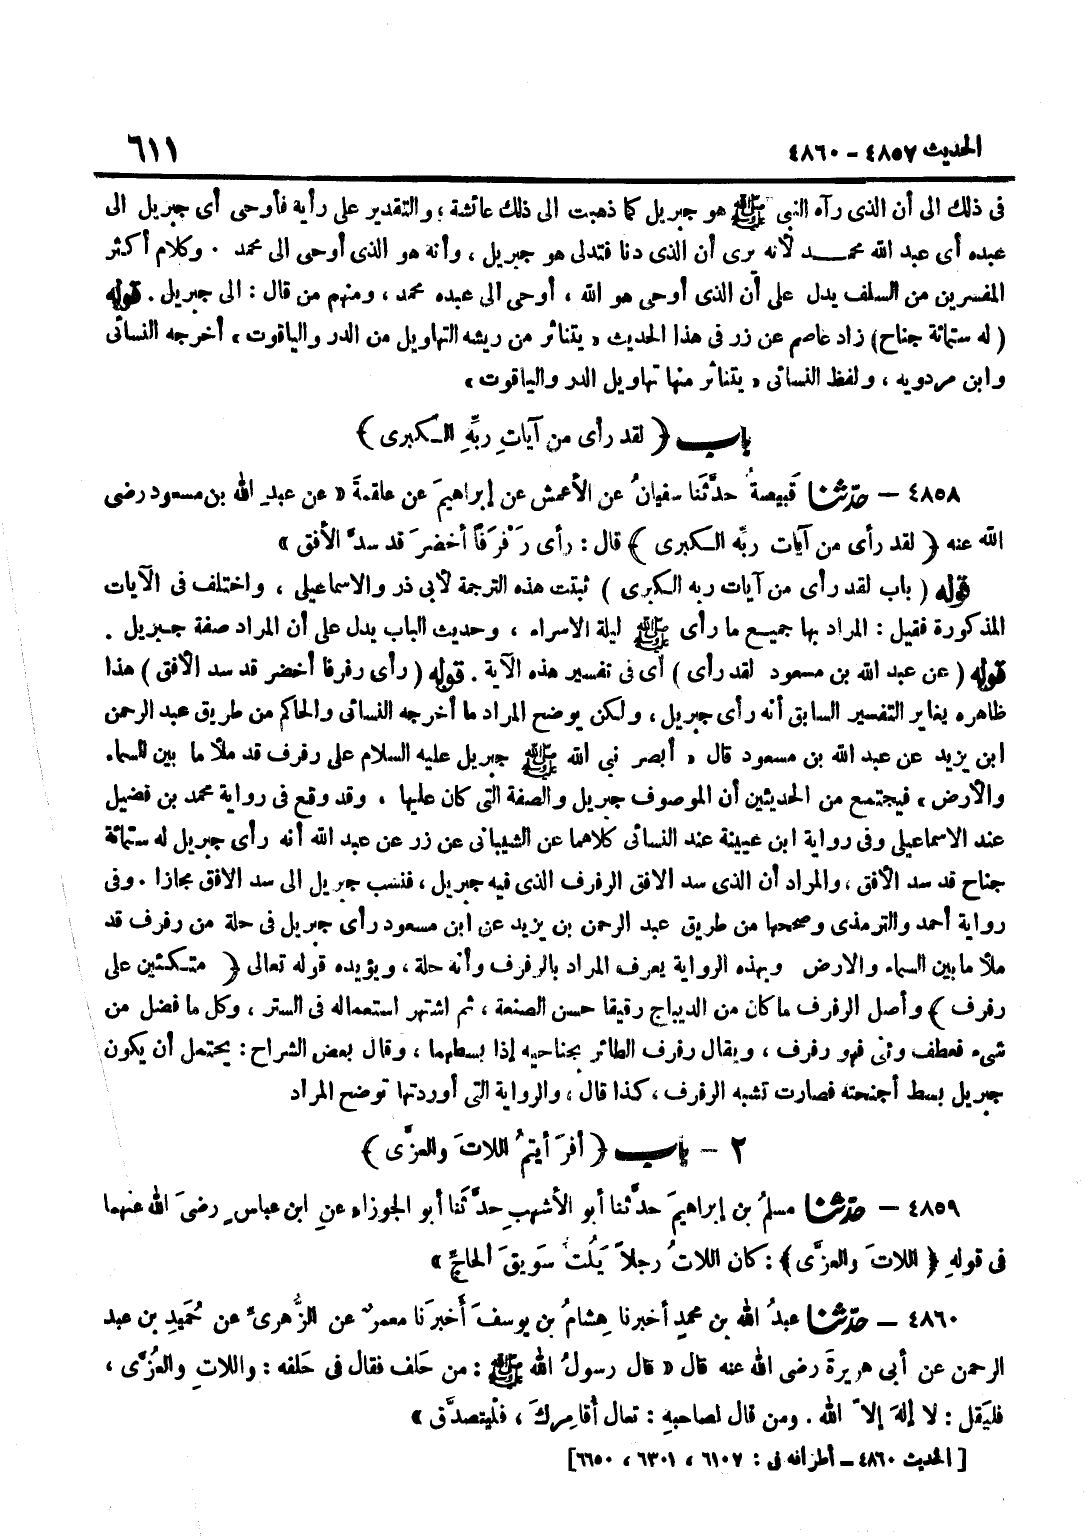 الحديث ٤٨٥٧ - ٤٨٦٠ ٦١١
فى ذلك الى أن الذى رآه النبى ﷺ هو جبريل كما ذهبت الى ذلك عائشة ؛ والتقدير على رأيه فأوحى أى جبريل الى
عبده أى عبد الله محمـــد لأنه يرى أن الذى دنا فتدلى هو جبريل ، وأنه هو الذى أوحى الى محمد . وكلام أكثر
المفسرين من السلف يدل على أن الذى أوحى هو الله ، أوحى الى عبده محمد ، ومنهم من قال : الى جبريل . قوله
( له ستمائة جناح ) زاد عاصم عن زر فى هذا الحديث « يتناثر من ريشه التهاويل من الدر والياقوت » أخرجه النسائى
وابن مردويه ، ولفظ النسائى « يتناثر منها تهاويل الدر والياقوت »
باب ﴿ لقد رأى من آياتِ ربِّهِ الـكبرى ﴾
٤٨٥٨ – حدّثنا قَبيصةُ حدَّثَنا سفيانُ عن الأعمش عن إبراهيمَ عن علقمةَ « عن عبدِ الله بن مسعود رضى
الله عنه ﴿ لقد رأى من آيات ربِّه الـكبرى ﴾ قال : رأى رَفْرَفاً أخضرَ قد سدَّ الأفق »
قوله ( باب لقد رأى من آيات ربه الـكبرى ) ثبتت هذه الترجمة لأبى ذر والاسماعيلى ، واختلف فى الآيات
المذكورة فقيل : المراد بها جميـع ما رأى ﷺ ليلة الاسراء ، وحديث الباب يدل على أن المراد صفة جـبريل .
قوله ( عن عبد الله بن مسعود لقد رأى ) أى فى تفسير هذه الآية . قوله ( رأى رفرفا أخضر قد سد الأفق ) هذا
ظاهره يغاير التفسير السابق أنه رأى جبريل ، ولكن يوضح المراد ما أخرجه النسائى والحاكم من طريق عبد الرحمن
ابن يزيد عن عبد الله بن مسعود قال « أبصر نبى الله ﷺ جبريل عليه السلام على رفرف قد ملأ ما بين السماء
والأرض » فيجتمـع من الحديثين أن الموصوف جبريل والصفة التى كان عليها ، وقد وقع فى رواية محمد بن فضيل
عند الاسماعيلى وفى رواية ابن عيينة عند النسائى كلاهما عن الشيبانى عن زر عن عبد الله أنه رأى جبريل له ستمائة
جناح قد سد الأفق ، والمراد أن الذى سد الافق الرفرف الذى فيه جبريل ، فنسب جبريل الى سد الافق مجازا . وفى
رواية أحمد والترمذى وصححها من طريق عبد الرحمن بن يزيد عن ابن مسعود رأى جبريل فى حلة من رفرف قد
ملأ ما بين السماء والارض وبهذه الرواية يعرف المراد بالرفرف وأنه حلة ، ويؤيده قوله تعالى ﴿ متـكئين على
رفرف ﴾ وأصل الرفرف ما كان من الديباج رقيقا حسن الصنعة ، ثم اشتهر استعماله فى الستر ، وكل ما فضل من
شىء فعطف وثنى فهو رفرف ، ويقال رفرف الطائر بجناحيه إذا بسطهما ، وقال بعض الشراح : يحتمل أن يكون
جبريل بسط أجنحته فصارت تشبه الرفرف ، كذا قال ، والرواية التى أوردتها توضح المراد
٢ – باب ﴿ أفرَأيتمُ اللاتَ والعزَّى ﴾
٤٨٥٩ – حدّثنا مسلمُ بن إبراهيمَ حدَّثنا أبو الأشهبِ حدَّثَنا أبو الجوزاء عنِ ابن عباسٍ رضىَ الله عنهما
فى قولهِ ﴿ اللاتَ والعزَّى ﴾ : كان اللاتُ رجلاً يَلُتُّ سَويقَ الحاجّ »
٤٨٦٠ – حدّثنا عبدُ الله بن محمدٍ أخبرنا هِشامُ بن يوسفَ أخبرَنا معمرٌ عن الزُّهرىّ عن حُمَيدِ بن عبد
الرحمن عن أبى هريرةَ رضى الله عنه قال « قال رسولُ الله ﷺ : من حَلف فقال فى حَلفه : واللاتِ والعُزَّى ،
فليَقل : لا إلهَ إلاَّ الله . ومن قال لصاحبهِ : تعال أقامِركَ ، فلْيتصدَّق »
[ الحديث ٤٨٦٠ – أطرافه فى : ٦١٠٧ ، ٦٣٠١ ، ٦٦٥٠ ]